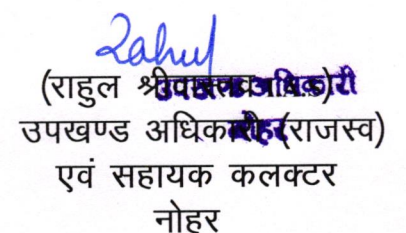 Rahul
(राहुल श्रीवास्तव
उपखण्ड अधिकारी
उपखण्ड अधिकारी (राजस्व)
नोहर
एवं सहायक कलक्टर
नोहर